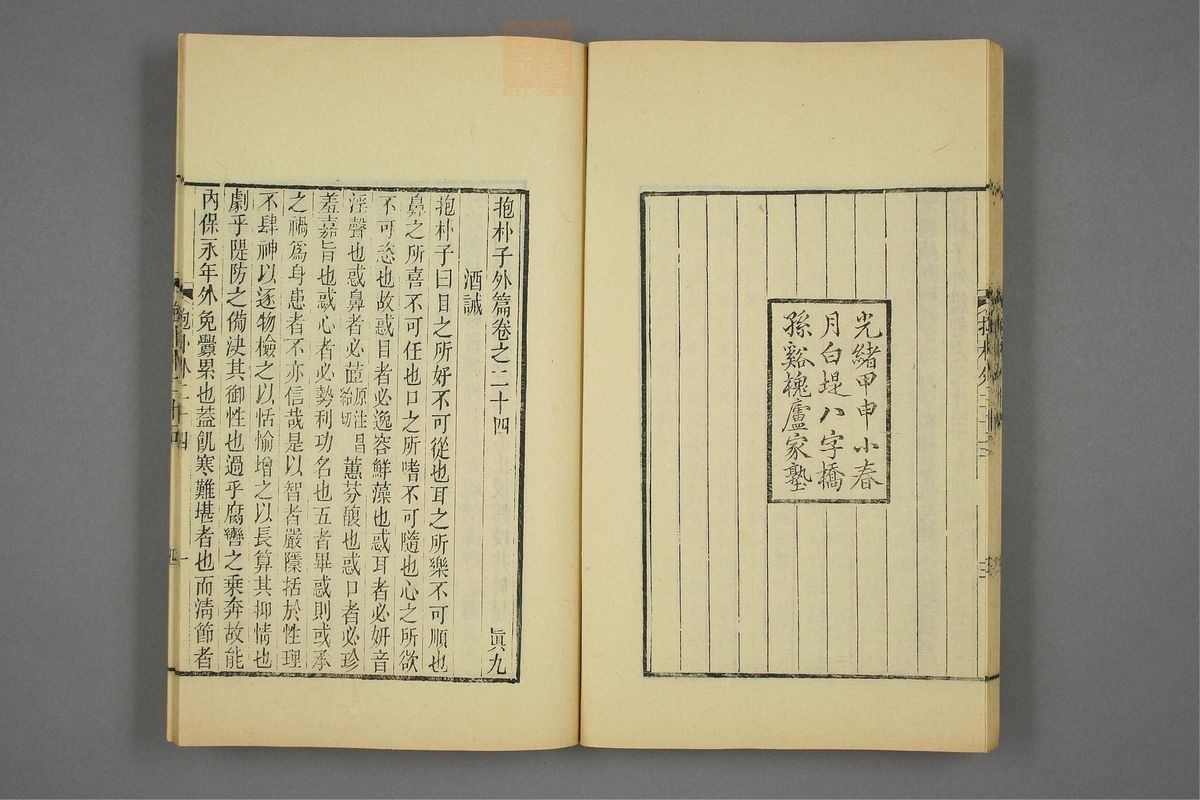 光緒甲申小春
月白堤八字橋
孫谿槐廬家塾
抱朴子外篇卷之二十四 眞九
酒誡
抱朴子曰目之所好不可從也耳之所樂不可順也
鼻之所喜不可任也口之所嗜不可隨也心之所欲
不可恣也故惑目者必逸容鮮藻也惑耳者必妍音
淫聲也惑鼻者必茝原注昌紿切蕙芬馥也惑口者必珍
羞嘉旨也惑心者必勢利功名也五者畢惑則或承
之禍爲身患者不亦信哉是以智者嚴隱括於性理
不肆神以逐物檢之以恬愉增之以長算其抑情也
劇乎隄防之備決其御性也過乎腐轡之乘奔故能
內保永年外免釁累也蓋飢寒難堪者也而清節者